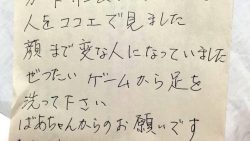 人をココエで見ました
顔まで変な人になっていました
ぜつたい ゲームから足を
洗って下さい
ばあちゃんからのお願いです